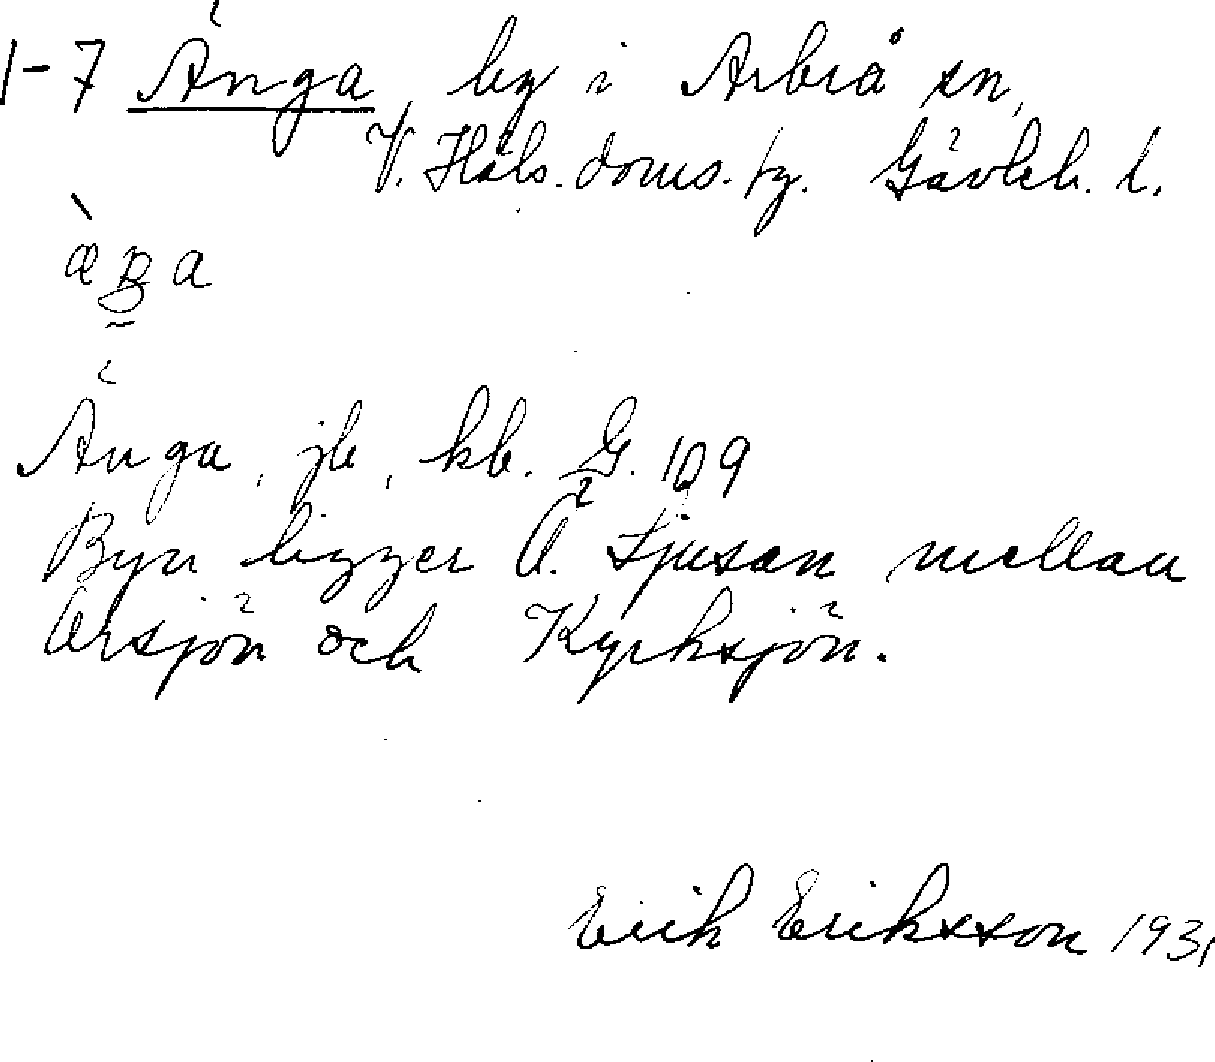 1-7 Änga, by i Arbrå sn,
V. Häls. doms. fg. Gävleb. l.
Änga, jb, kb. G. 109
Byn ligger Ö. Ljusan mellan
Orsjön och Kyrksjön.
Erik Eriksson 1931